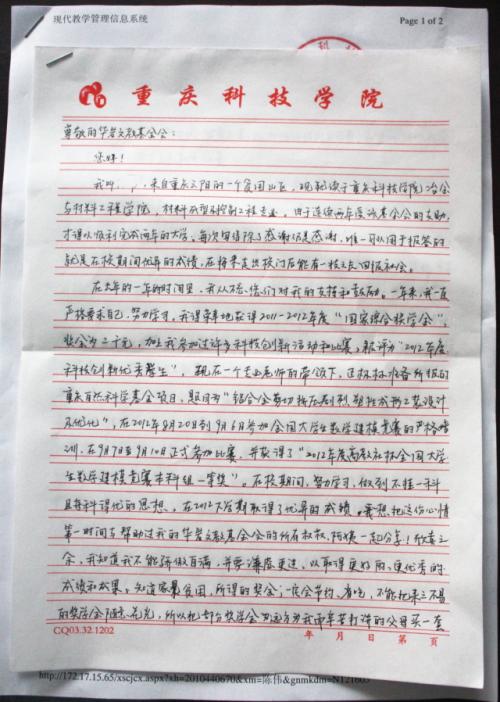 现代教学管理信息系统
Page 1 of 2
重庆科技学院
尊敬的华岩文教基金会：
您好！
我叫，来自重庆云阳的一个贫困山区，现就读于重庆科技学院冶金
与材料工程学院，材料成型及控制工程专业。由于连续两年受该基金会的支助，
才得以顺利完成两年的大学。每次写信除了感谢仍是感谢，唯一可以用于报答的
就是在校期间优异的成绩，在将来走出校门后能有一技之长回报社会。
在去年的一年时间里，我从不忘您们对我的支持和鼓励。一年来，我一直
严格要求自己，努力学习，我很荣幸地获得2011-2012年度“国家综合校学金”，
奖金为二千元，加上我参加过许多科技创新活动和比赛，被评为“2012年度
科技创新优秀学生”，现在一个专业老师的带领下，这标标准备所报的
重庆自然科学基金项目，题目为“铝合金剪切挤压制剂塑性成形工装设计
及优化”，在2012年8月20日到9月6日参加全国大学生数学建模竞赛的严格培
训，在9月7日至9月10日正式参加比赛，并获得了“2012年度高教社杯全国大学
生数学建模竞赛本科组一等奖”。在校期间，努力学习，做到不挂一科
且每科得优的思想，在2012大学期取得了优异的成绩。我想把这份心情
第一时间与帮助过我的华岩文教基金会的所有叔叔、阿姨一起分享！欣喜之
余，我知道我不能骄傲自满，并要谦虚更进，以取得更好的、更优秀的
成绩和成果。知道家里贫困，所得的奖金，一定会节约、省吃，不能把来之不易
的奖学金随意花光，所以把部分奖学金为我常年苦打拼的父母买一套
CQ03.32.1202
年 月 日 第 页
http://172.17.15.65/xscjcx.aspx?xh=2010440670&xm=陈伟&gnmkdm=N121605